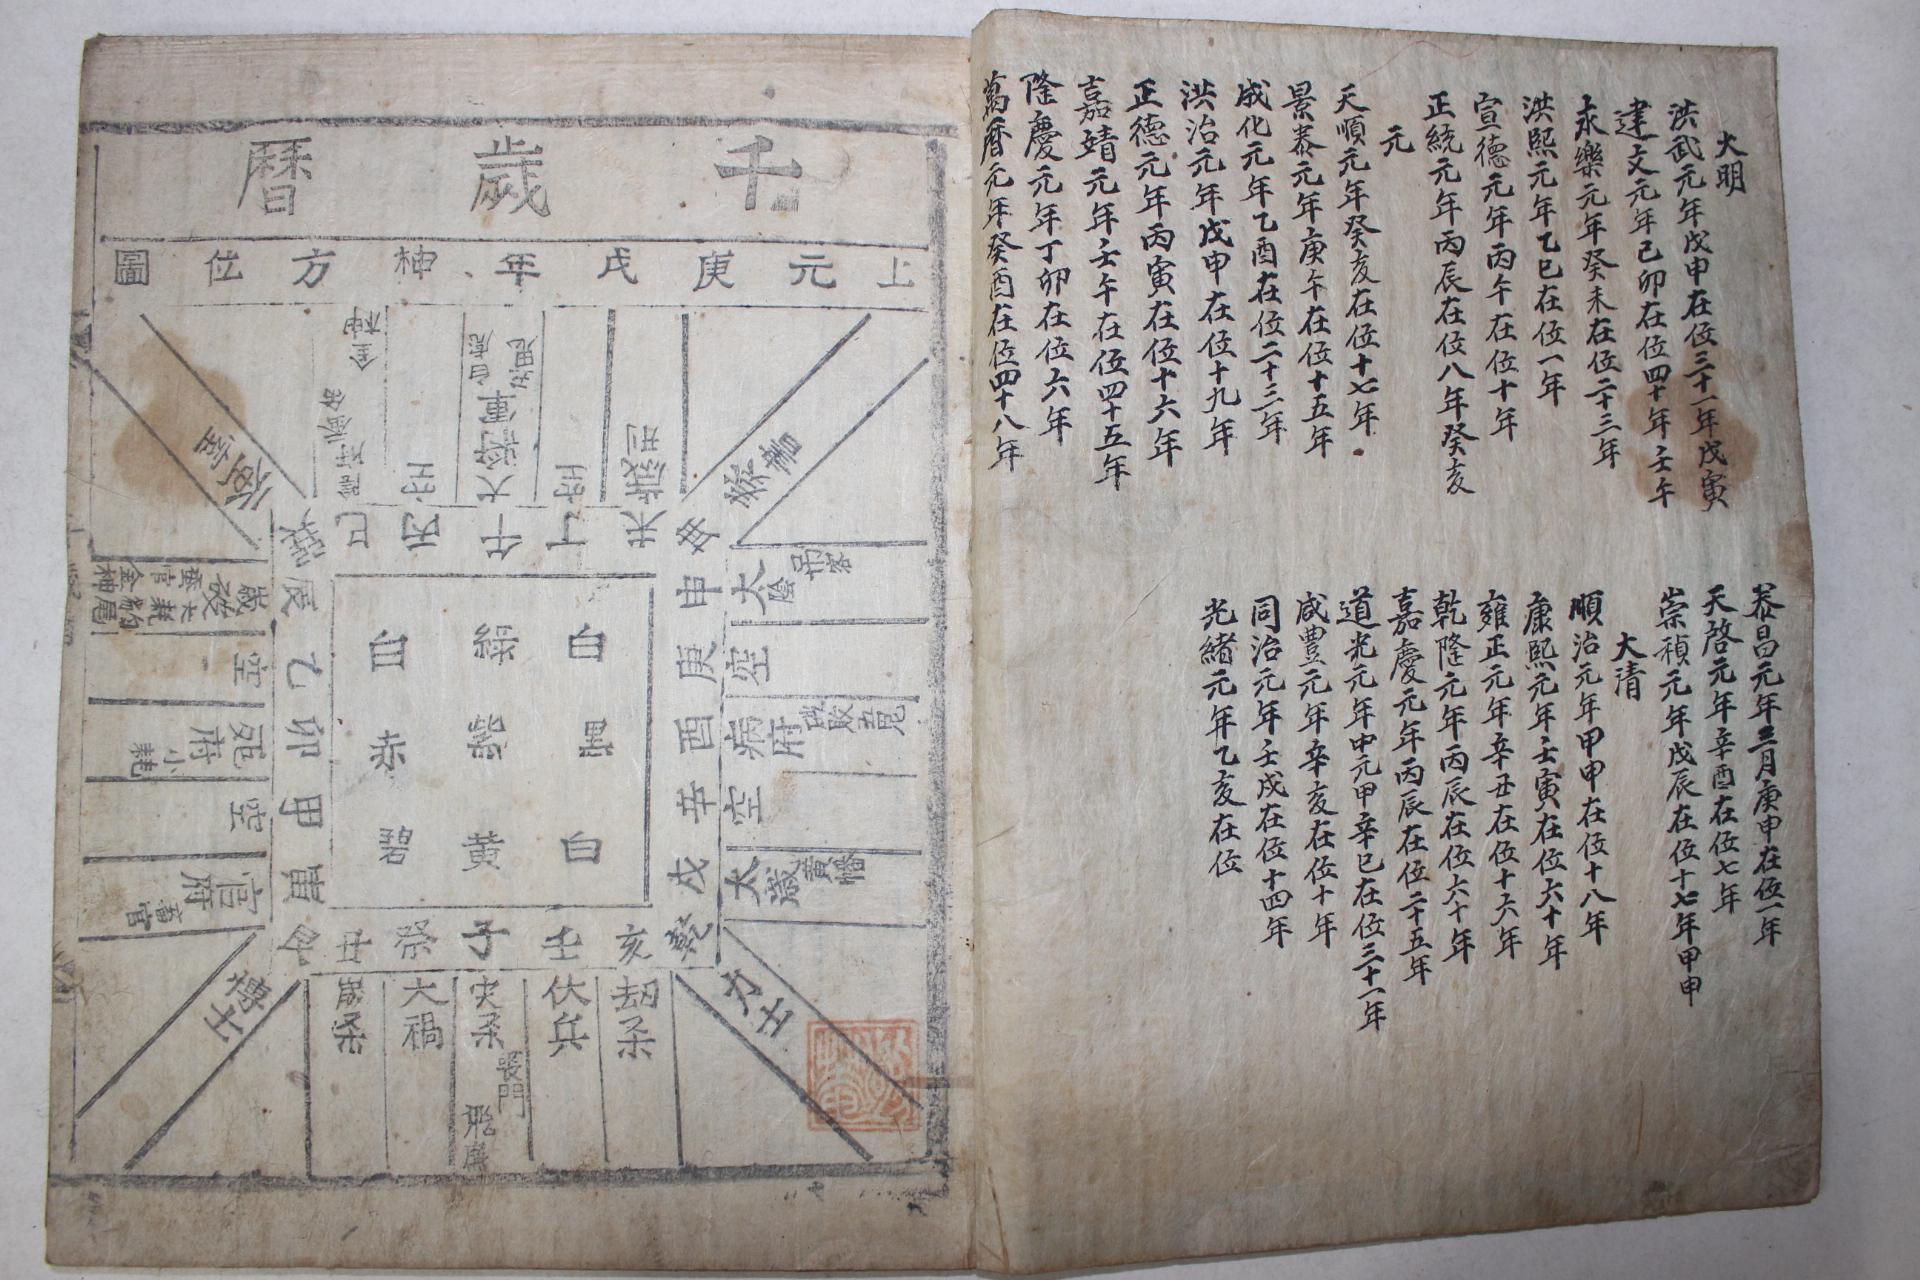 大明
洪武元年戊申在位三十一年戊寅
建文元年己卯在位四十年壬午
永樂元年癸未在位二十三年
洪熙元年乙巳在位一年
宣德元年丙午在位十年
正統元年丙辰在位八年癸亥
元
天順元年癸亥在位十七年
景泰元年庚午在位十五年
成化元年乙酉在位二十三年
洪治元年戊申在位十九年
正德元年丙寅在位十六年
嘉靖元年壬午在位四十五年
隆慶元年丁卯在位六年
萬曆元年癸酉在位四十八年
泰昌元年三月庚申在位一年
天啓元年辛酉在位七年
崇禎元年戊辰在位十七年甲申
大清
順治元年甲申在位十八年
康熙元年壬寅在位六十年
雍正元年辛丑在位十六年
乾隆元年丙辰在位六十年
嘉慶元年丙辰在位二十五年
道光元年中元甲辛巳在位三十一年
咸豊元年辛亥在位十年
同治元年壬戌在位十四年
光緒元年乙亥在位
千歲曆
上元庚戌年神方位圖
金神
白虎
大將軍
歲刑
奏書
巽巳丙午丁未
辰乙卯甲寅
申庚酉辛戌乾
丑癸子壬亥
白
白
赤
碧
黃
白
太陰
弔客
空
病府
空
太歲
黃幡
歲破
大耗
金神
空
死府
小耗
空
官府
畜官
博士
力士
歲杀
大禍
灾杀
喪門
飛廉
伏兵
劫杀